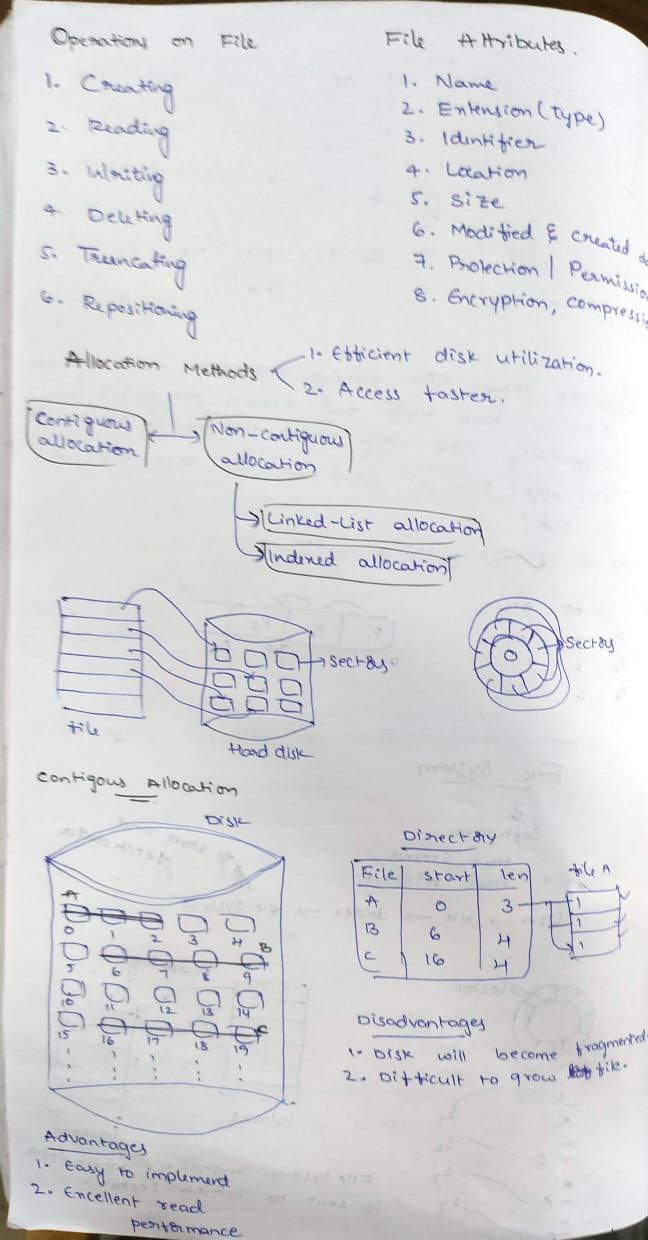 Operations on File
1. Creating
2. Reading
3. Writing
4 Deleting
5. Truncating
6. Repositioning
File Attributes.
1. Name
2. Extension (Type)
3. Identifier
4. Location
5. Size
6. Modified & created
7. Protection | Permission
8. Encryption, compressi
Allocation Methods
1. Efficient disk utilization.
2. Access faster.
Contiguous
allocation
Non-contiguous
allocation
Linked-List allocation
Indexed allocation
file
Sectors
Hard disk
Sectors
Contigous Allocation
Disk
A
0 1 2 3 4 B
5 6 7 8 9
10 11 12 13 14
C
15 16 17 18 19
Directory
File start len
A 0 3
B 6 4
C 16 4
file A
1
1
1
Disadvantages
1. Disk will become fragmented
2. Difficult to grow file.
Advantages
1. Easy to implement
2. Excellent read
performance